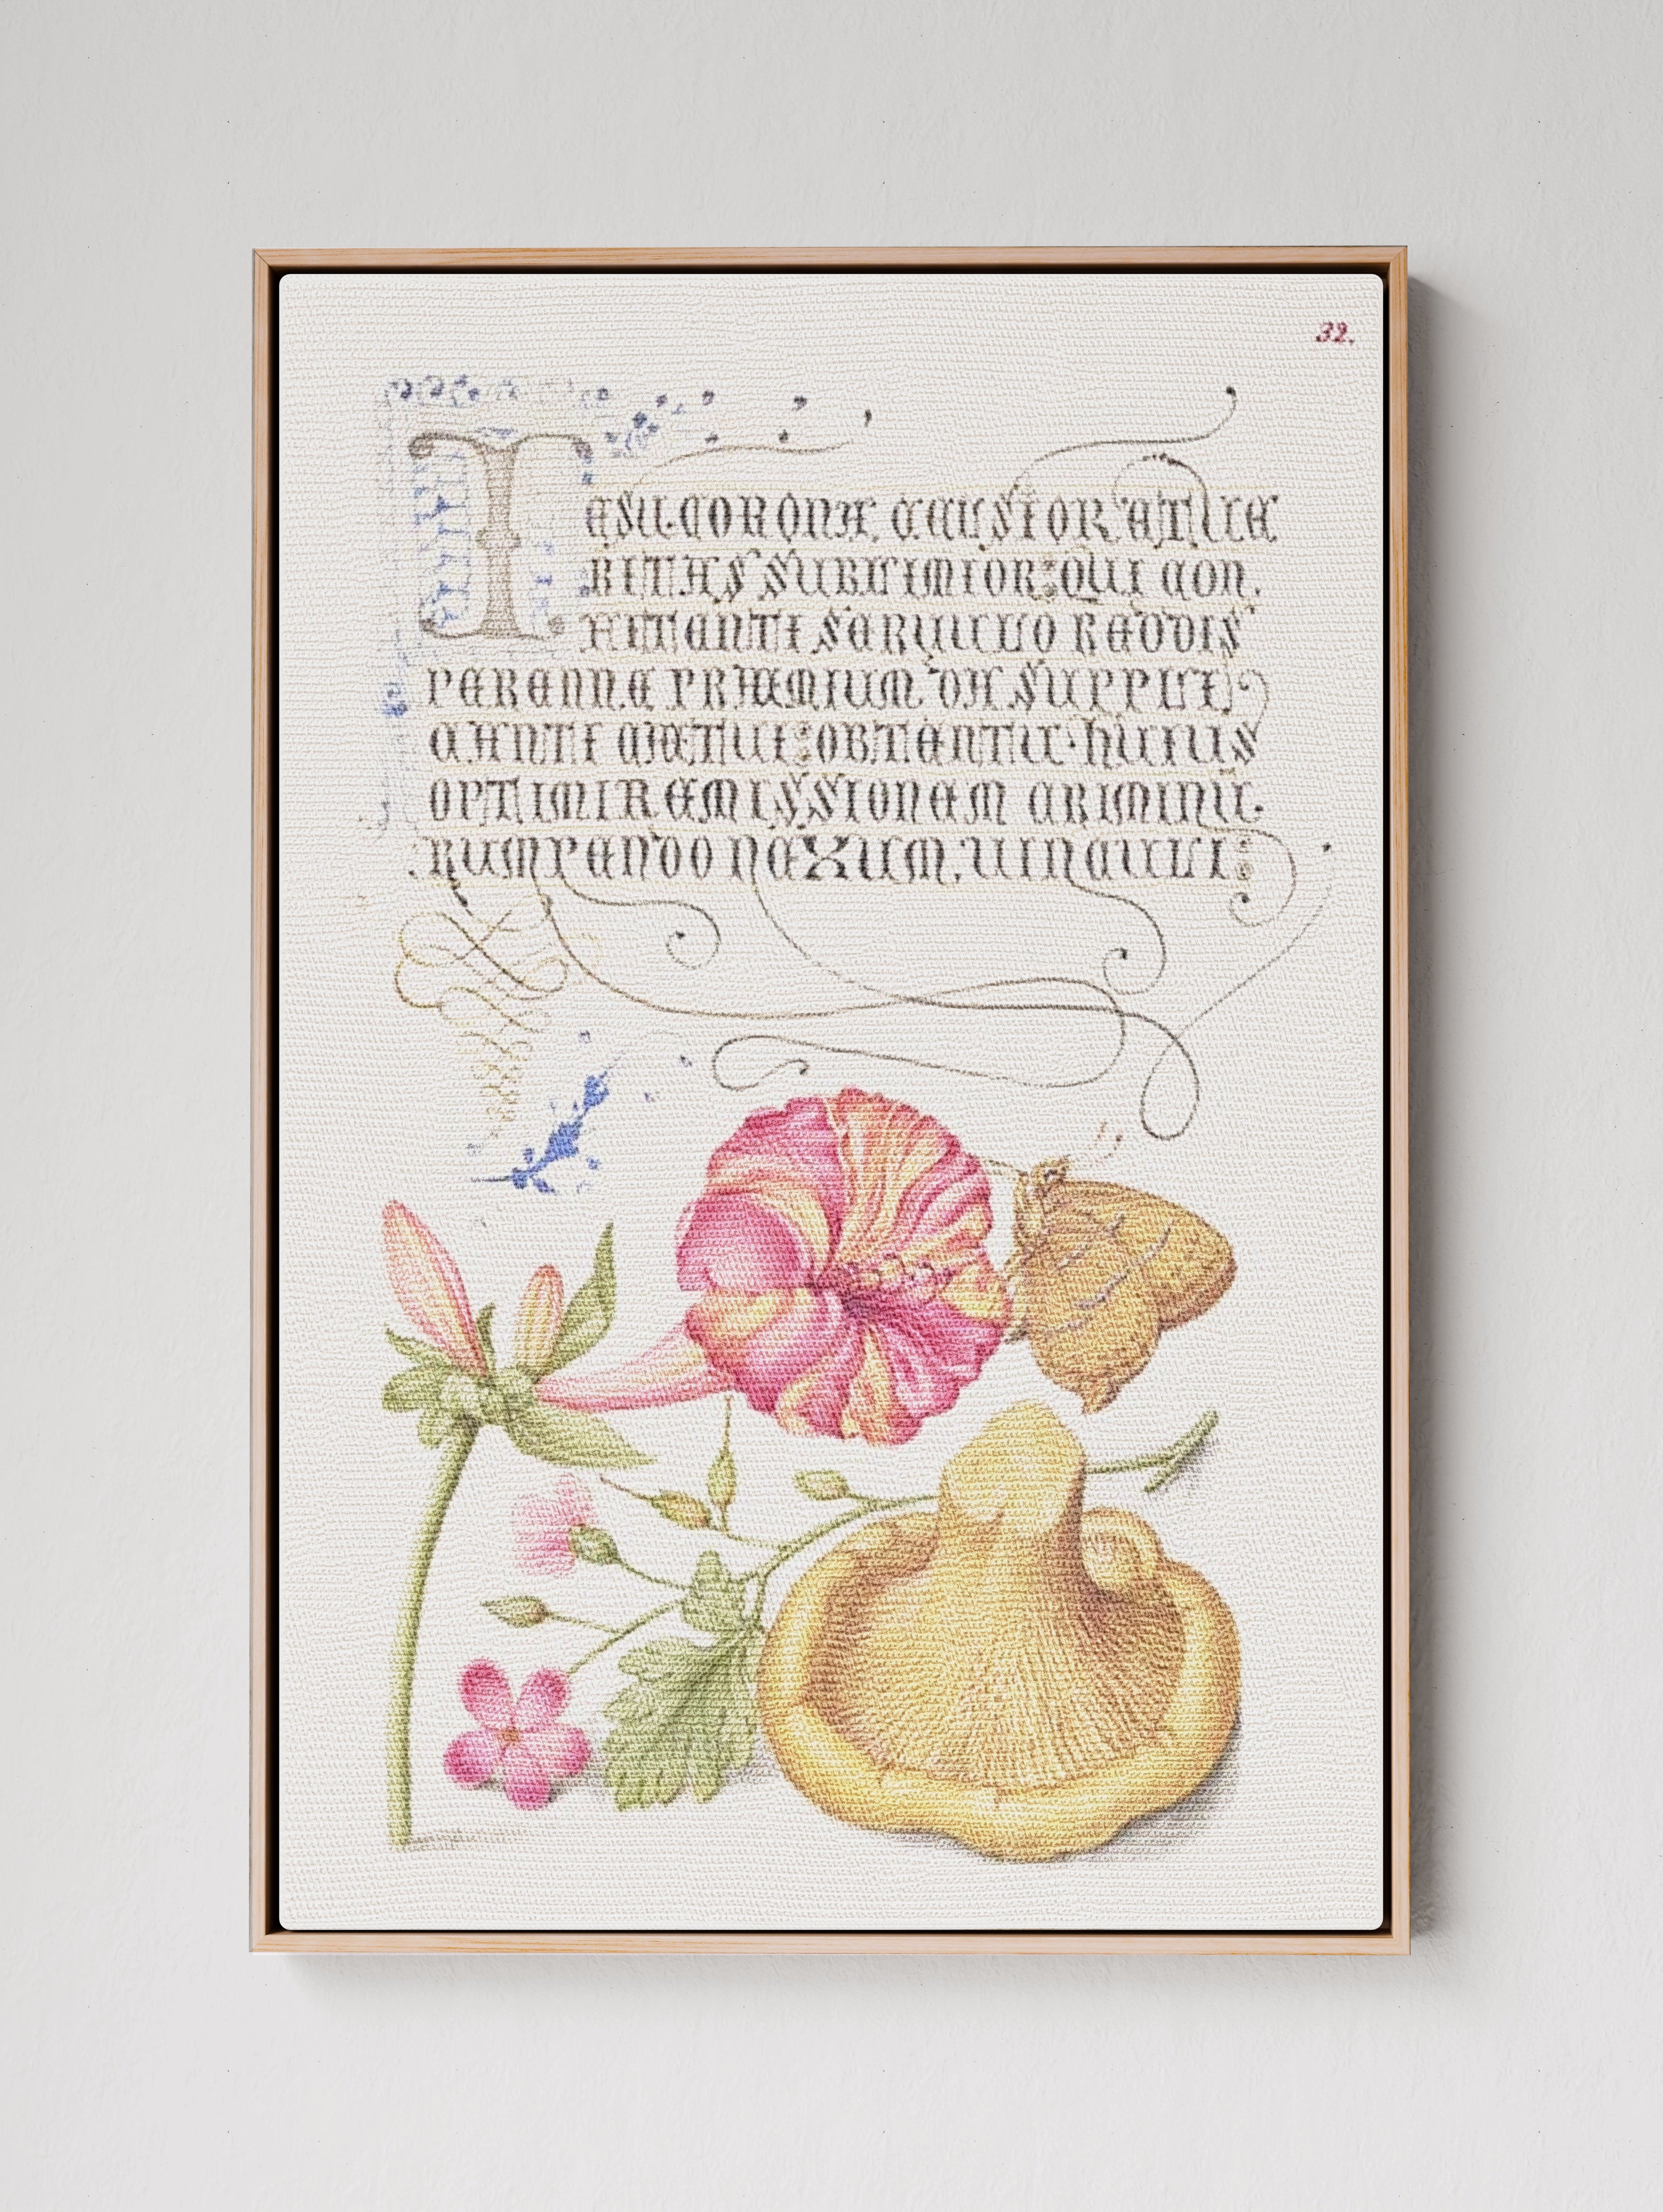 32.
IESU CORONA CELSIOR ET UE
RITAS SUBLIMIOR: QUI CON,
FITENTI SERUULO REDDIS
PERENNE PRÆMIUM. DA SUPPLI
CANTI CÆTUI: OBTENTU HUIUS
OPTIMI REMISSIONEM CRIMINU.
RUMPENDO NEXUM, UINCULI: